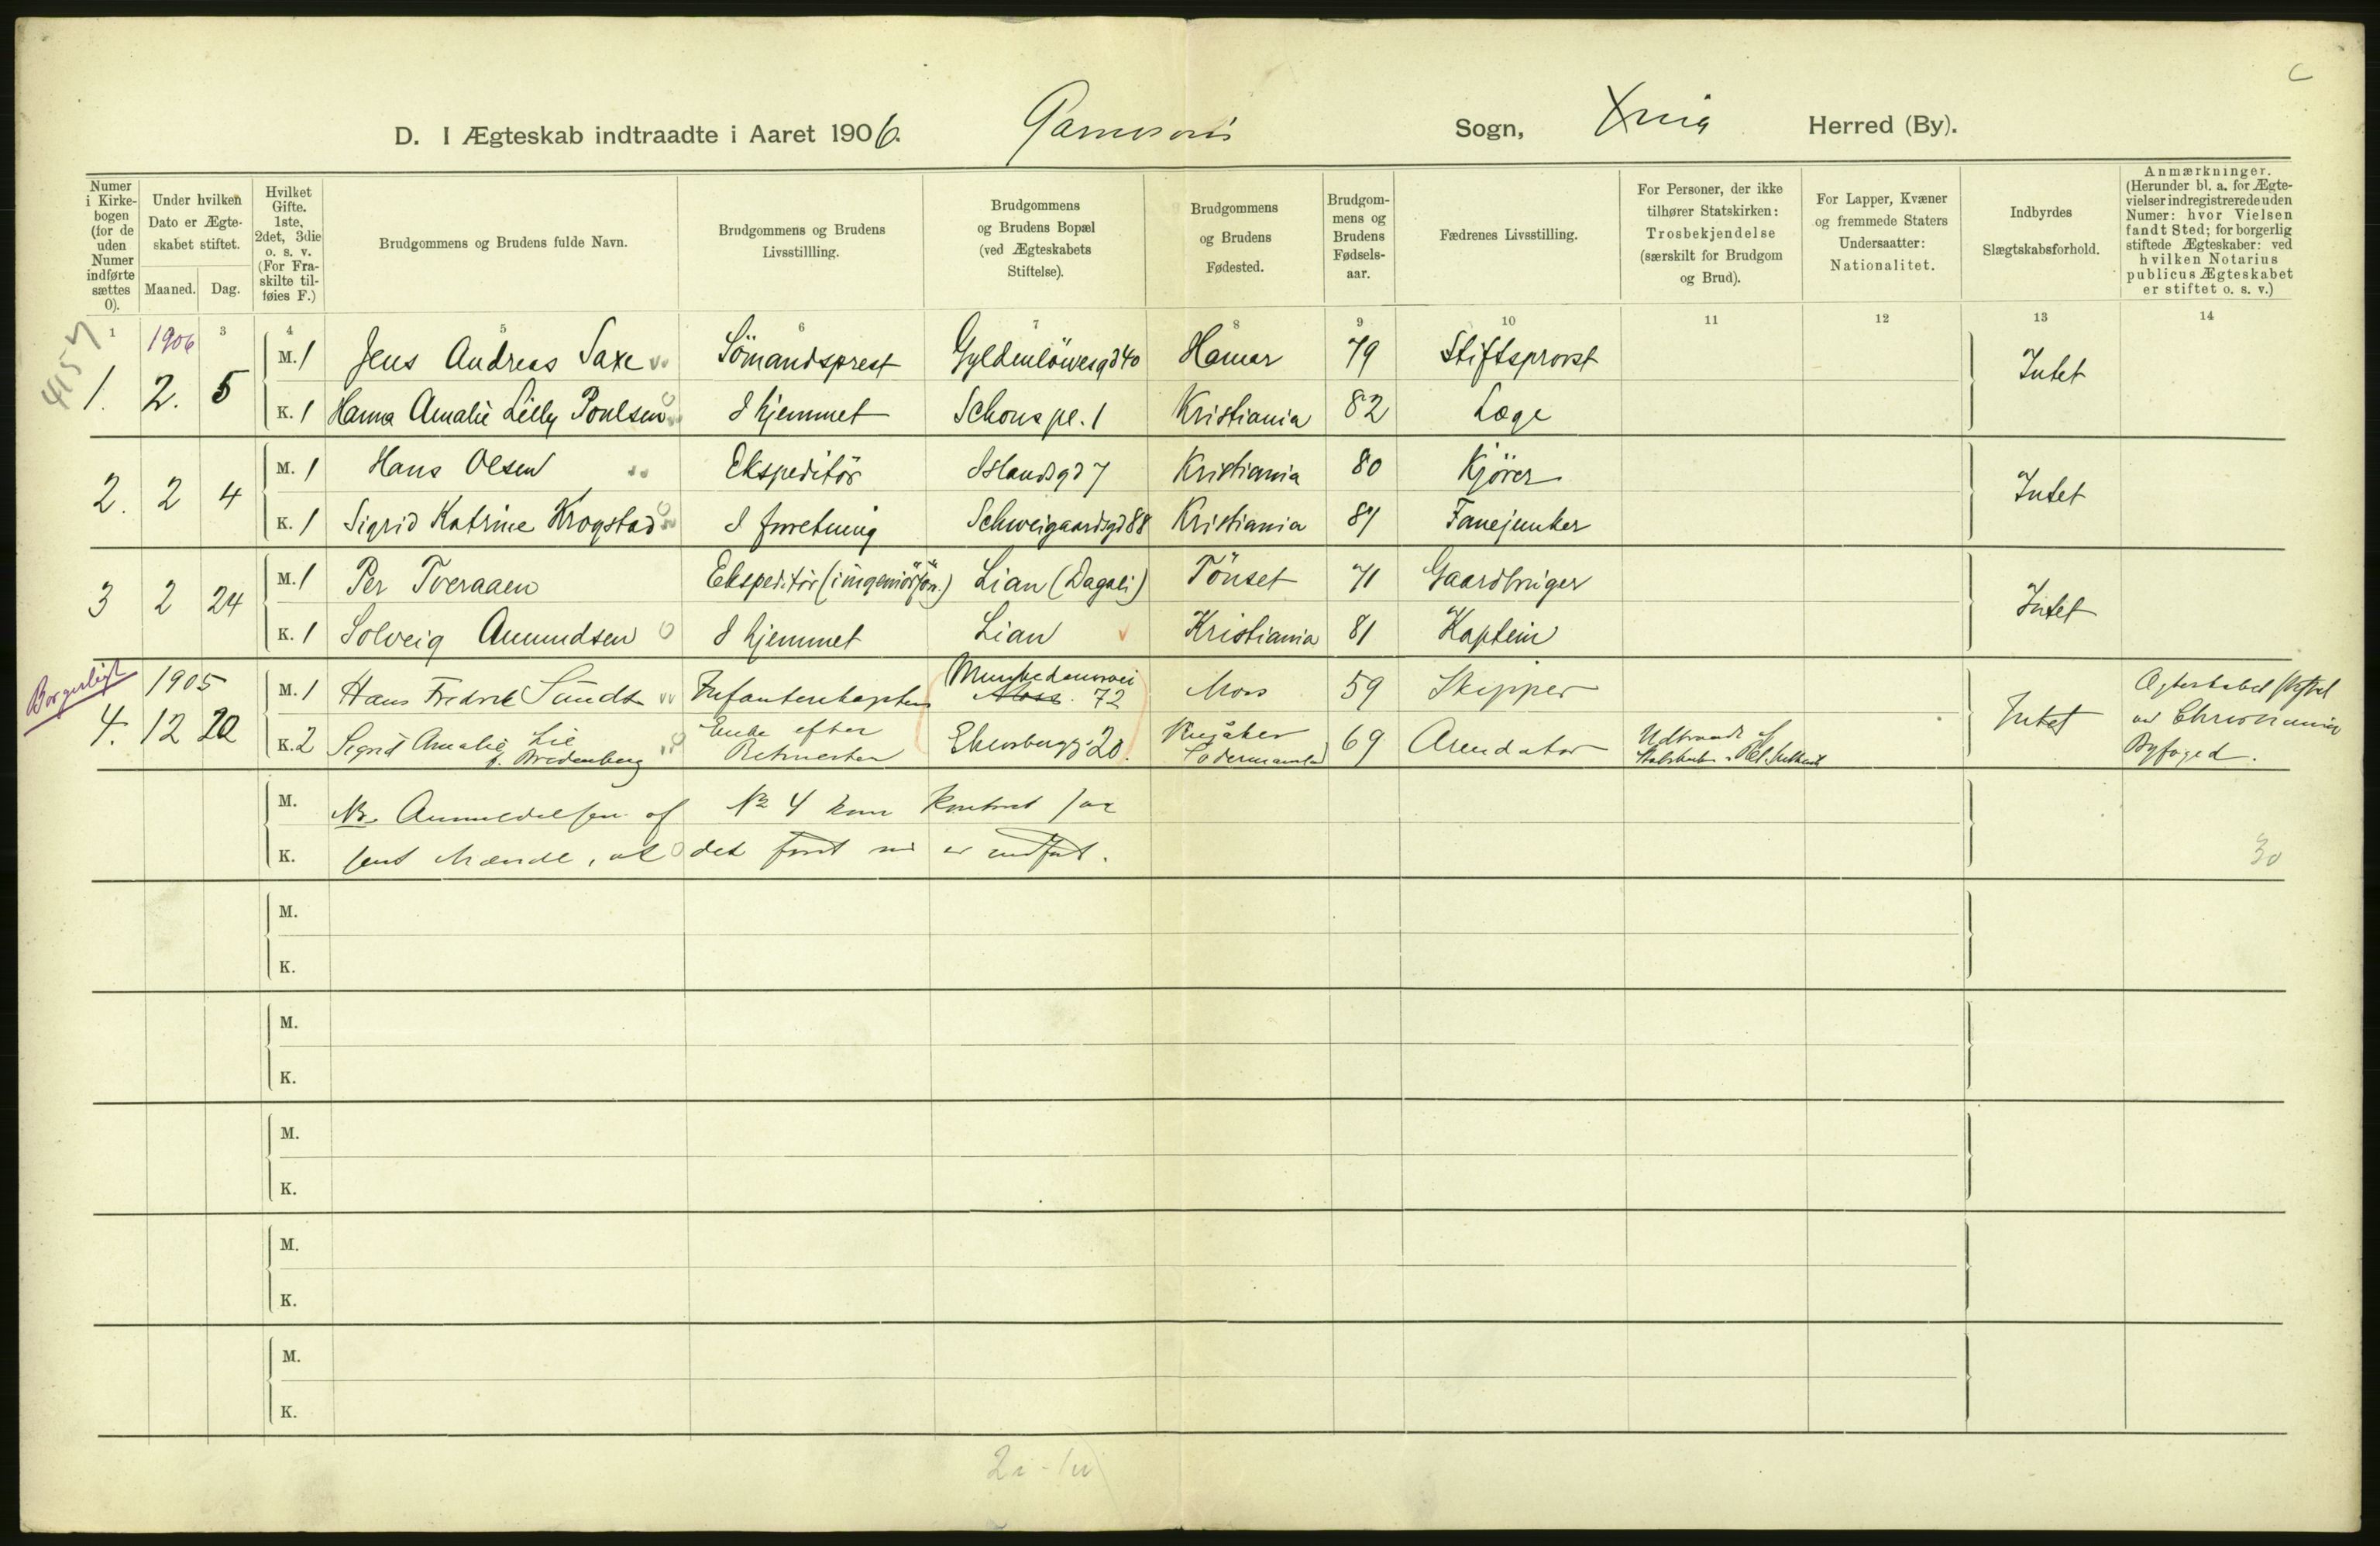 D. I Ægteskab indtraadte i Aaret 1906. Garnisons Sogn, Xnia Herred (By).
Numer i Kirkebogen (for de uden Numer indførte sættes 0).
Under hvilken Dato er Ægteskabet stiftet.
Maaned. Dag.
Hvilket Gifte. 1ste, 2det, 3die o. s. v. (For Fraskilte tilføies F.)
Brudgommens og Brudens fulde Navn.
Brudgommens og Brudens Livsstillling.
Brudgommens og Brudens Bopæl (ved Ægteskabets Stiftelse).
Brudgommens og Brudens Fødested.
Brudgommens og Brudens Fødselsaar.
Fædrenes Livsstilling.
For Personer, der ikke tilhører Statskirken: Trosbekjendelse (særskilt for Brudgom og Brud).
For Lapper, Kvæner og fremmede Staters Undersaatter: Nationalitet.
Indbyrdes Slægtskabsforhold.
Anmærkninger. (Herunder bl. a. for Ægtevielser indregistrerede uden Numer: hvor Vielsen fandt Sted; for borgerlig stiftede Ægteskaber: ved hvilken Notarius publicus Ægteskabet er stiftet o. s. v.)
1 3 4 5 6 7 8 9 10 11 12 13 14
4157
1906
1. 2. 5 M. 1 Jens Andreas Saxe Sömandsprest Gyldenlöwesgd 40 Hamar 79 Stiftsprovst Intet
K. 1 Hanna Amalie Lilly Poulsen I hjemmet Schous pl. 1 Kristiania 82 Læge
2. 2 4 M. 1 Hans Olsen Ekspeditör Islandsgd 7 Kristiania 80 Kjörer Intet
K. 1 Sigrid Katrine Krogstad I forretning Schweigaardsgd 88 Kristiania 81 Fanejunker
3 2 24 M. 1 Per Tveraaen Ekspeditör (ingeniör) Lian (Dagali) Tönset 71 Gaardbruger Intet
K. 1 Solveig Amundsen I hjemmet Lian Kristiania 81 Kaptein
Borgerligt
1905
4. 12 20 M. 1 Hans Fredrik Sundt Infanterikaptein Munkedamsvei Moss 72 Moss 59 Skipper Intet Ægteskabet stiftet
K. 2 Sigrid Amalie Lie f. Bredenberg Enke efter Ritmester Ekersbergsgd 20. 69 Arendator Udtraadt af Statskirken ved Christiania Byfoged.
M. NB. Anmeldelsen af No 4 kom
K. sent ihænde, at det först nu er indfört. 30
M.
K.
M.
K.
M.
K.
M.
K.
M.
K.